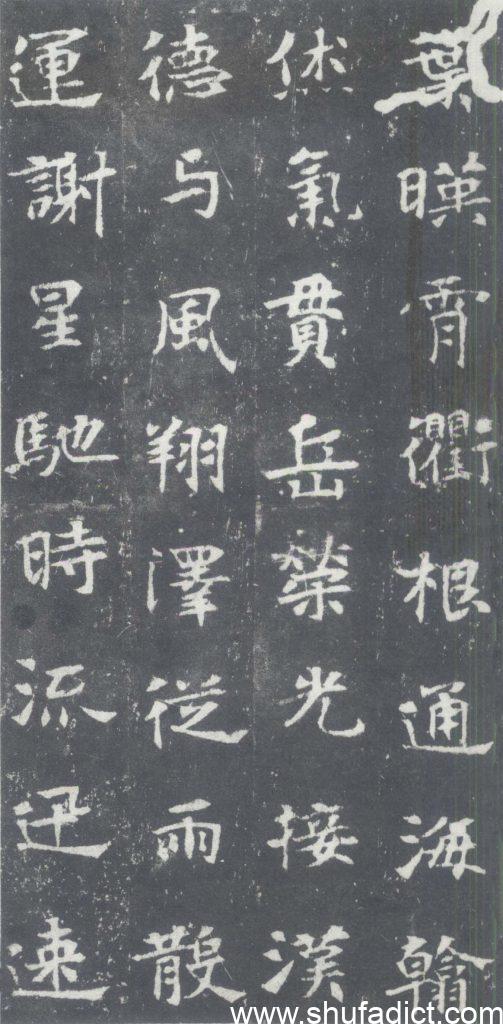 葉暎霄衢根通海翰
烋氣貫岳榮光接漢
德与風翔澤從雨散
運謝星馳時流迅速
www.shufadict.com